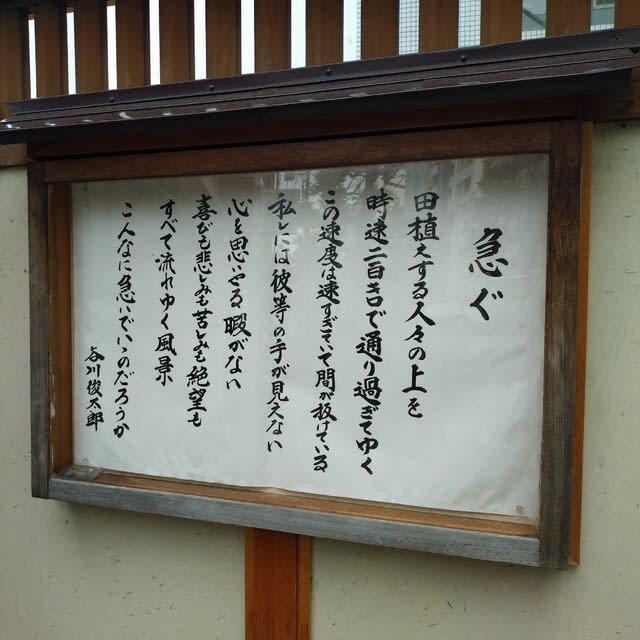 急ぐ
田植えする人々の上を
時速二百キロで通り過ぎてゆく
この速度は速すぎていて間が抜けている
私には彼等の手が見えない
心を思いやる暇がない
喜びも悲しみも苦しみも絶望も
すべて流れゆく風景
こんなに急いでいいのだろうか
谷川俊太郎